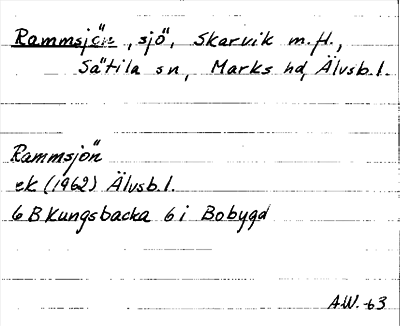 Rammsjön, sjö, Skarvik m.fl.,
Sätila sn, Marks hd, Älvsb.l.
Rammsjön
ek (1962) Älvsb.l.
6 B Kungsbacka 6 i Bobygd
A.W. -63